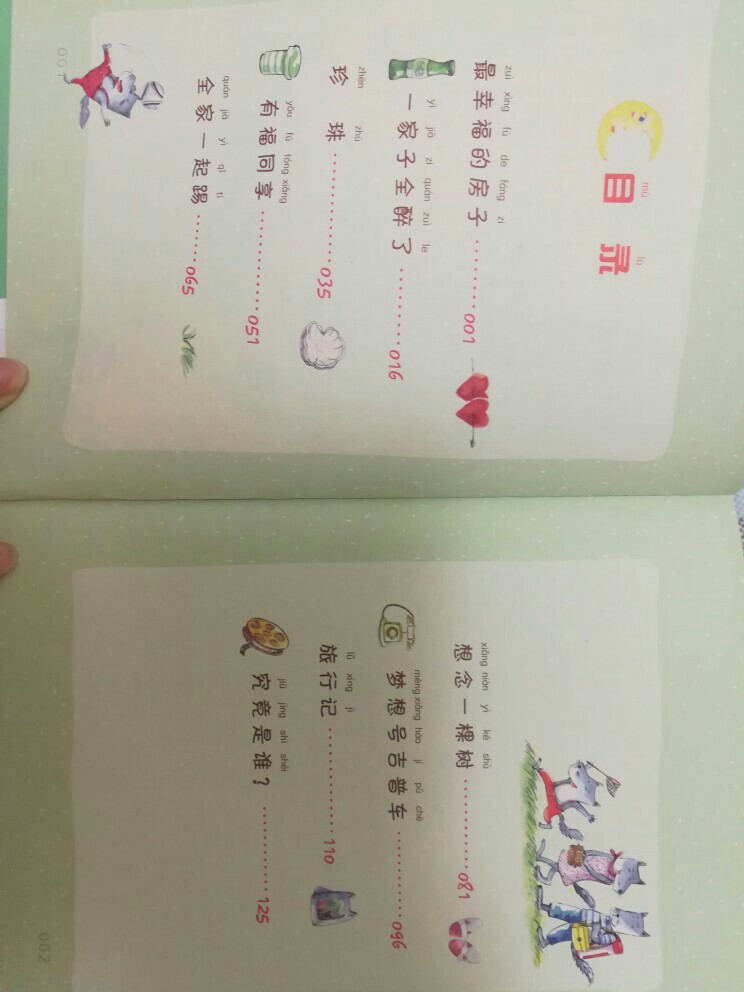 mù lù
目录
zuì xìng fú de fáng zi
最幸福的房子………001
yì jiā zi quán zuì le
一家子全醉了………016
zhēn zhū
珍珠……………035
yǒu fú tóng xiǎng
有福同享…………051
quán jiā yì qǐ tī
全家一起踢……065
001
xiǎng niàn yì kē shù
想念一棵树…………081
mèng xiǎng hào jí pǔ chē
梦想号吉普车…………096
lǚ xíng jì
旅行记……………110
jiū jìng shì shéi
究竟是谁？…………125
002